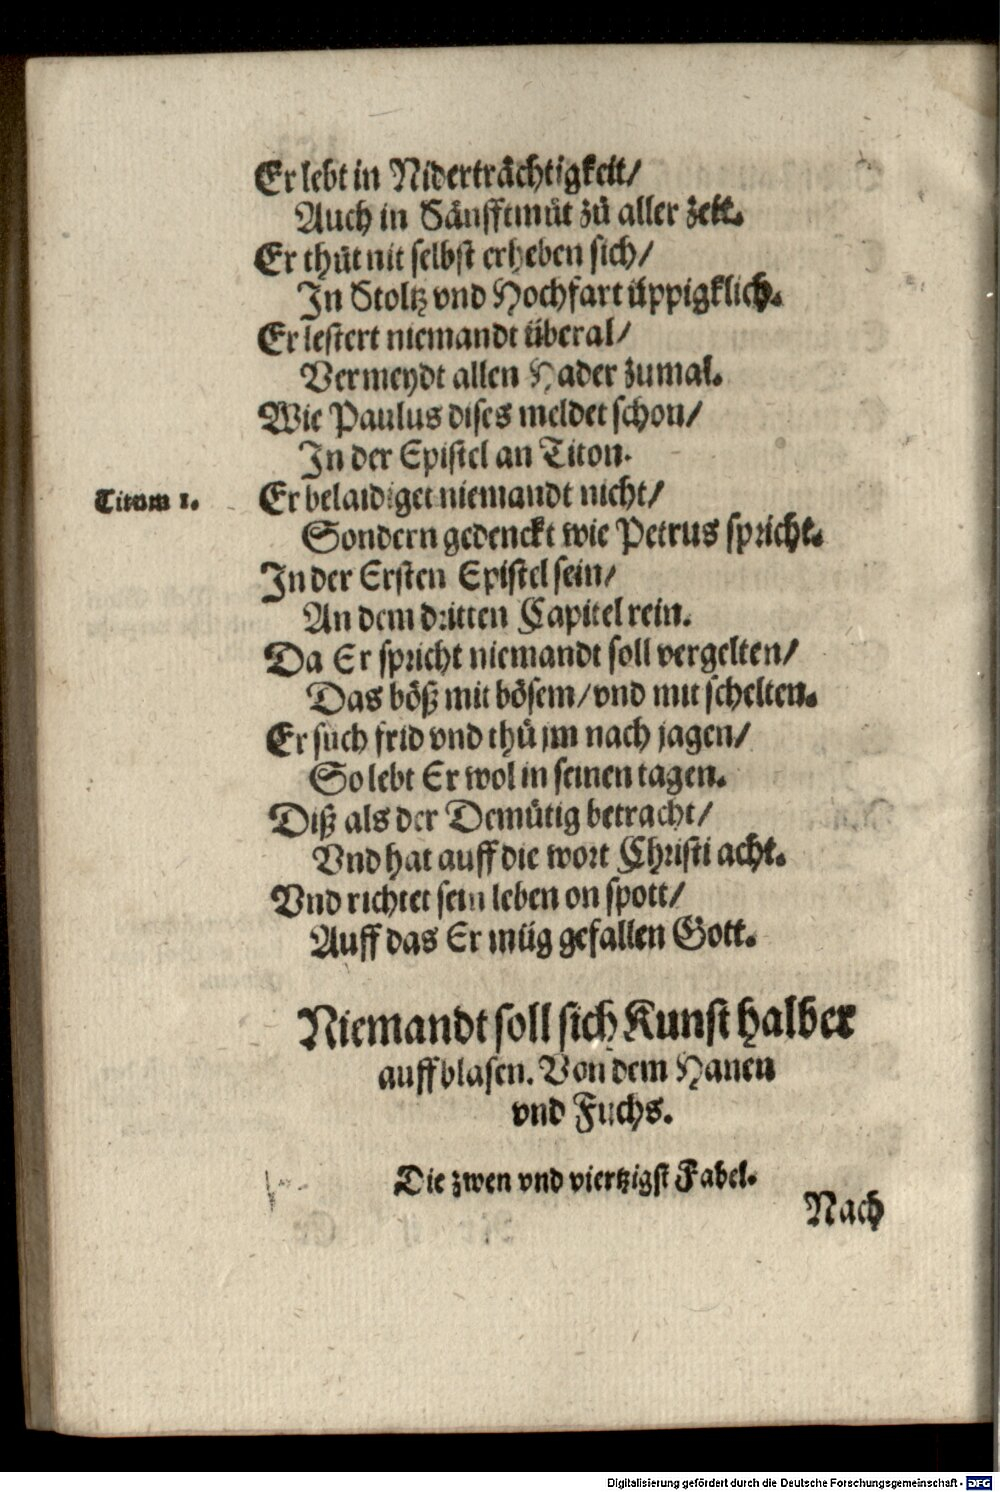 Er lebt in Niderträchtigkeit/
Auch in Sänfftmüt zů aller zeit.
Er thůt nit selbst erheben sich/
In Stoltz vnd Hochfart üppigklich.
Er lestert niemandt überal/
Vermeydt allen Hader zumal.
Wie Paulus dises meldet schon/
In der Epistel an Titon.
Titum 1.
Er belaidiget niemandt nicht/
Sondern gedenckt wie Petrus spricht.
In der Ersten Epistel sein/
An dem dritten Capitel rein.
Da Er spricht niemandt soll vergelten/
Das böß mit bösem/vnd mit schelten.
Er sůch frid vnd thů jm nach jagen/
So lebt Er wol in seinen tagen.
Diß als der Demütig betracht/
Vnd hat auff die wort Christi acht.
Vnd richtet sein leben on spott/
Auff das Er müg gefallen Gott.
Niemandt soll sich Kunst halber
auffblasen. Von dem Hanen
vnd Fuchs.
Die zwen vnd viertzigst Fabel.
Nach
Digitalisierung gefördert durch die Deutsche Forschungsgemeinschaft - DFG